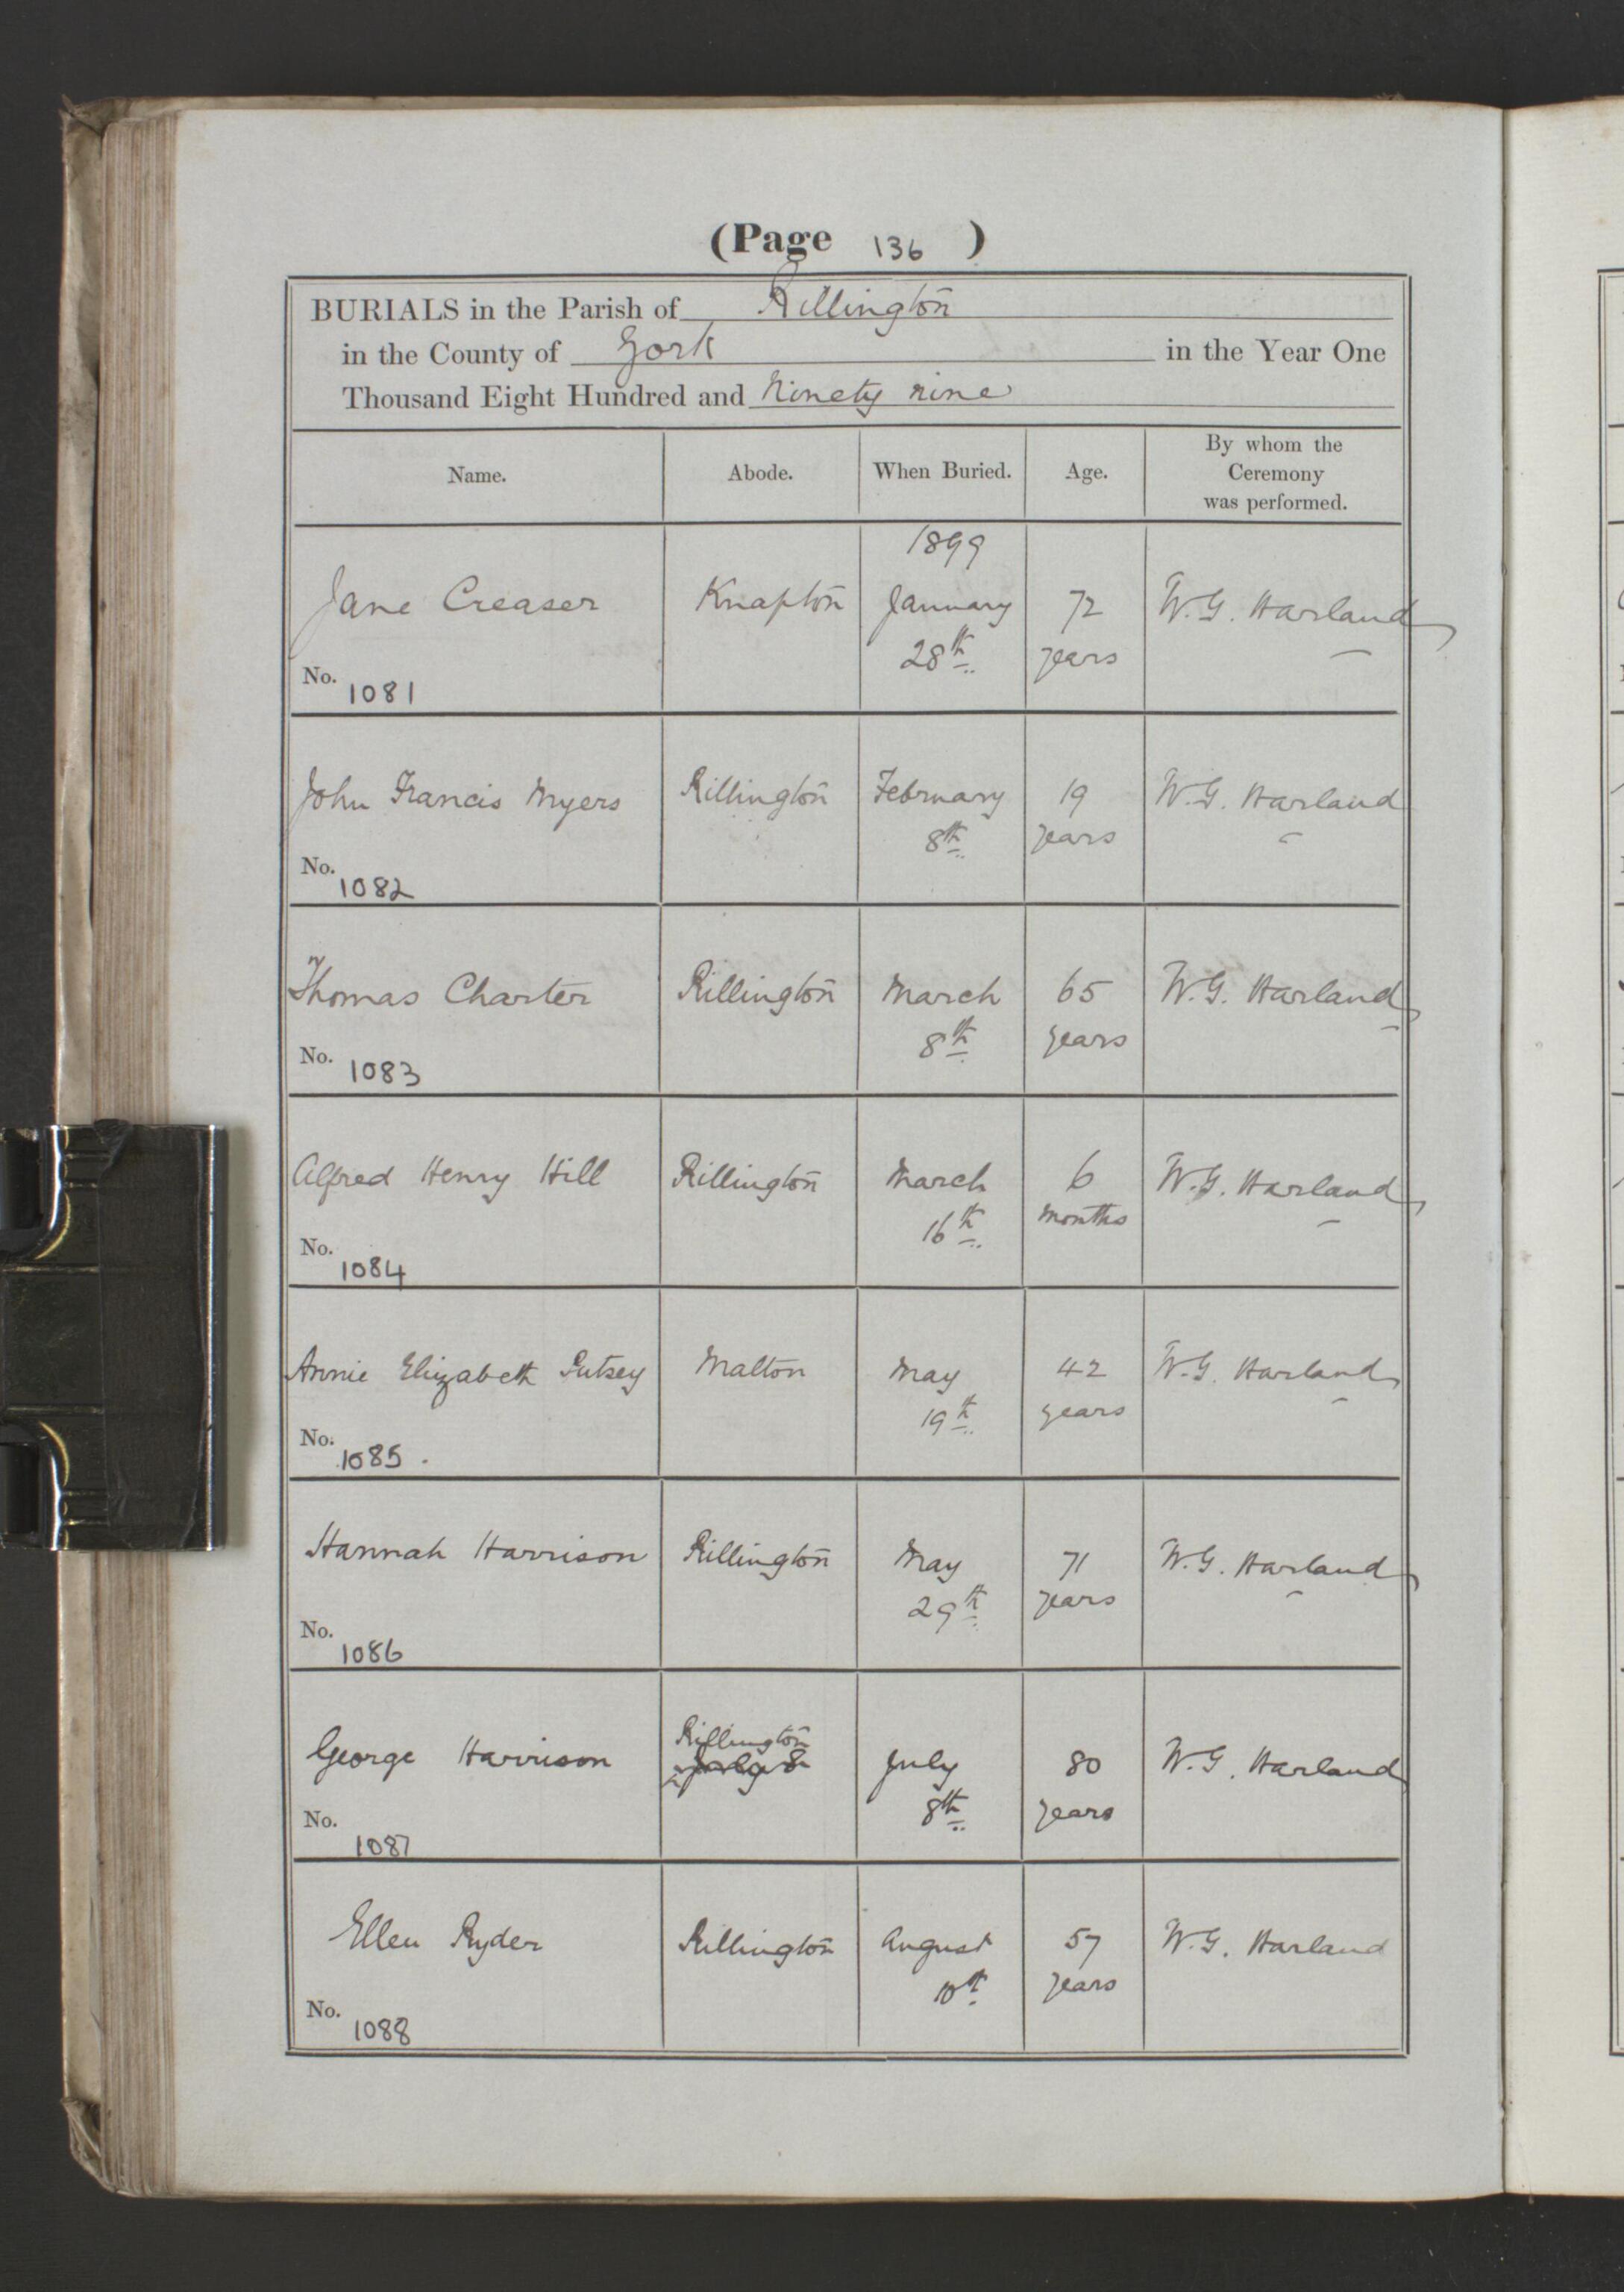 (Page 136 )
BURIALS in the Parish of Rillington
in the County of York in the Year One
Thousand Eight Hundred and Ninety nine
Name. Abode. When Buried. Age. By whom the Ceremony was performed.
1899
Jane Creaser Knapton January 72 W. G. Harland
28th years
No. 1081
John Francis Myers Rillington February 19 W. G. Harland
8th years
No. 1082
Thomas Charter Rillington March 65 W. G. Harland
8th years
No. 1083
Alfred Henry Hill Rillington March 6 W. G. Harland
16th months
No. 1084
Annie Elizabeth Putsey Malton May 42 W. G. Harland
19th years
No. 1085.
Hannah Harrison Rillington May 71 W. G. Harland
29th years
No. 1086
Rillington
George Harrison July 8 July 80 W. G. Harland
8th years
No. 1087
Ellen Ryder Rillington August 57 W. G. Harland
10th years
No. 1088